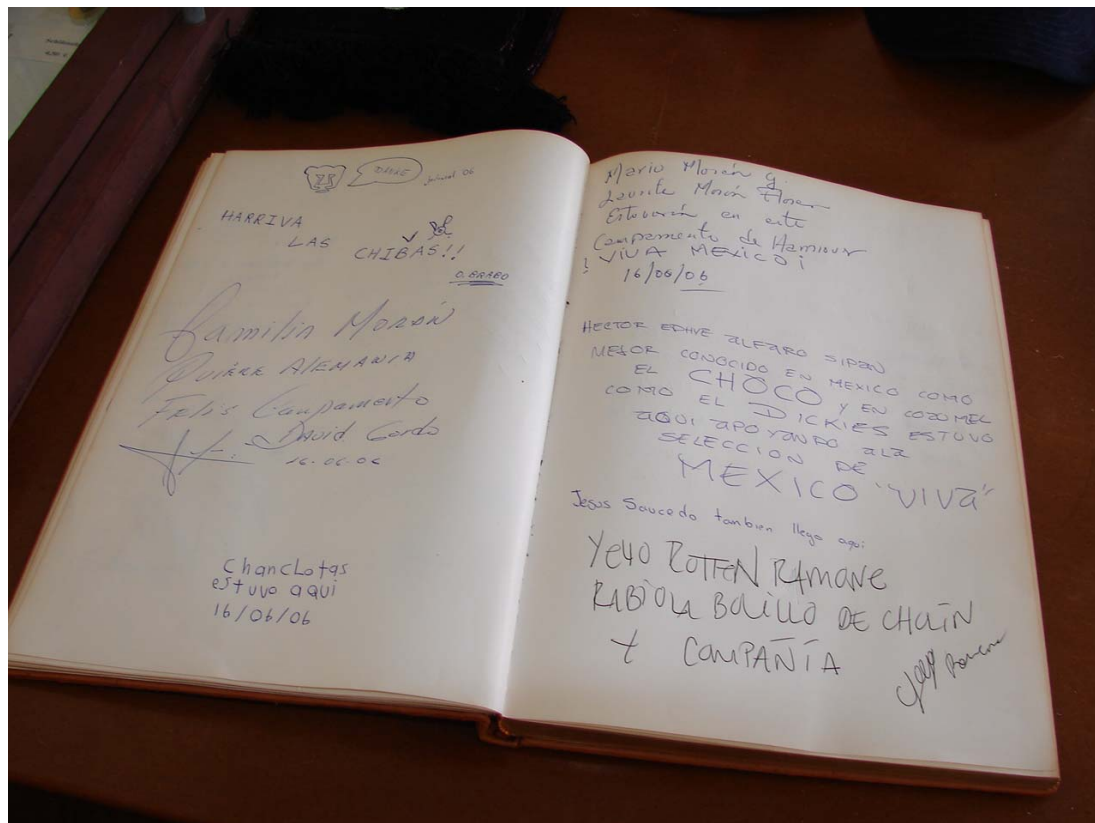 HARRIVA
LAS
CHIBAS!!
O. BRABO
Familia Morán
Quiere ALEMANIA
Campamento
David Cordo
16-06-06
Chanclotas
estuvo aqui
16/06/06
Mario Morán G.
Morán Flores
Estuvieron en este
Campamento de Hannover
¡VIVA MEXICO!
16/06/06
HECTOR EDHVE ALFARO SIPAN
MEJOR CONOCIDO EN MEXICO COMO
EL CHOCO Y EN COZUMEL
COMO EL DICKIES ESTUVO
AQUI APOYANDO ALA
SELECCION DE
MEXICO "VIVA"
Jesus Saucedo tanbien llego aqui
YEYO ROTTEN RAMONE
RABIOLA BOLILLO DE CHOLÍN
Y COMPAÑÍA